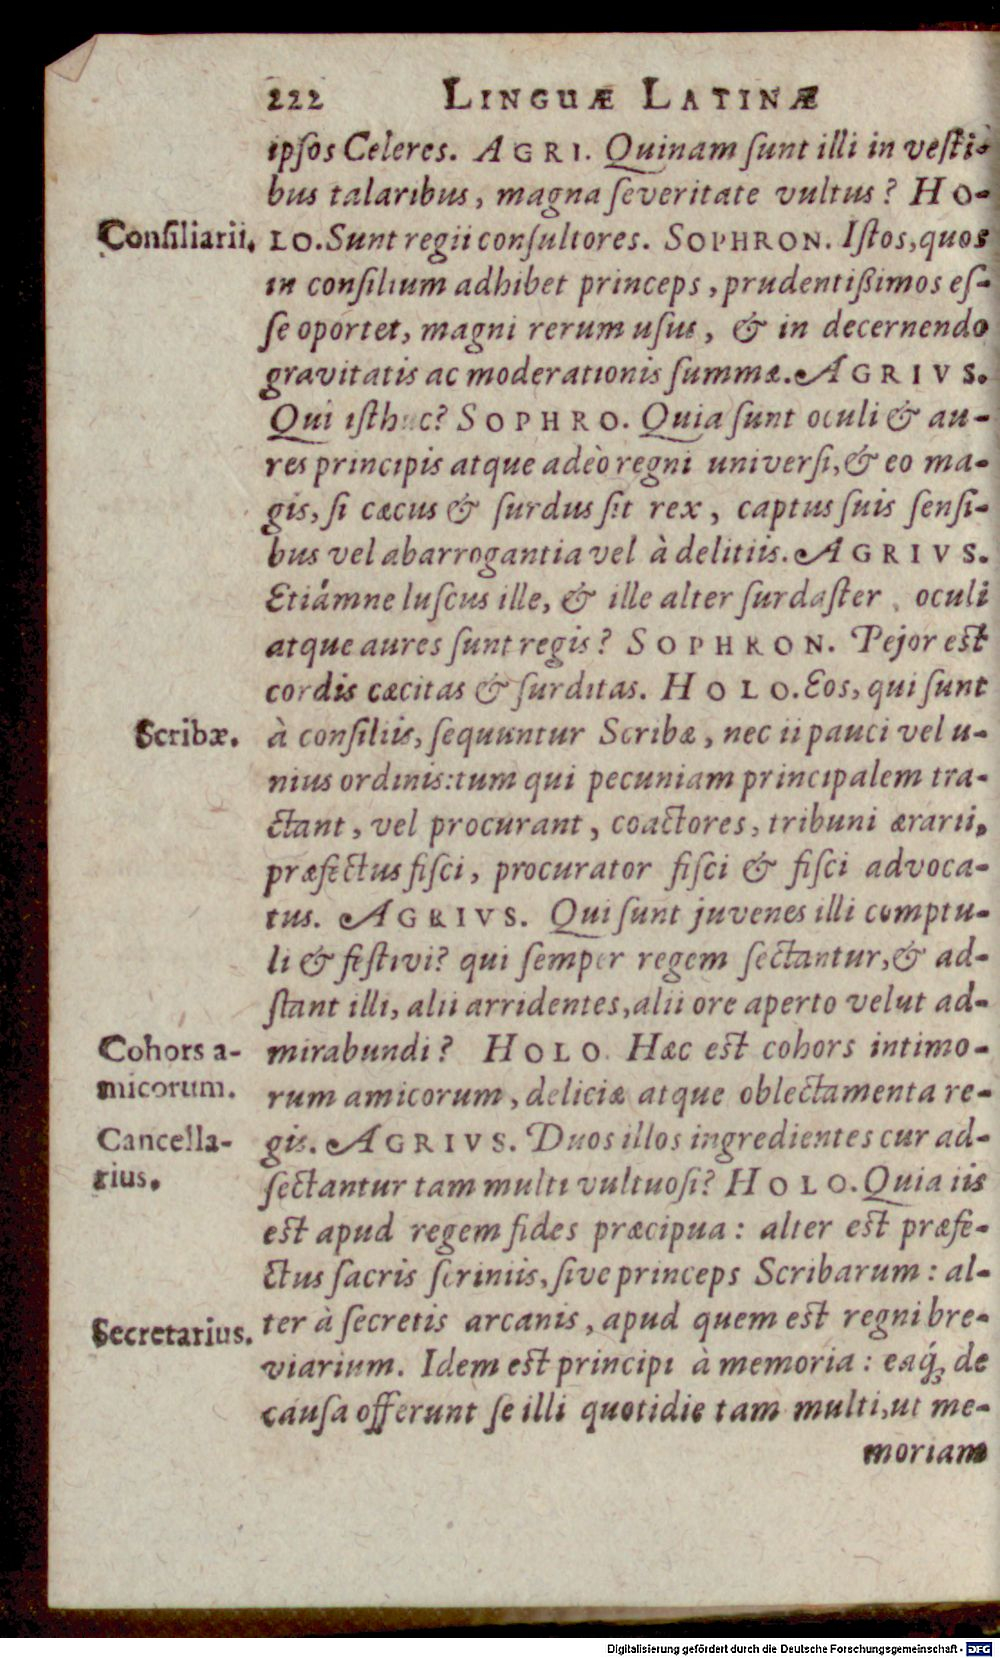 222 LINGUÆ LATINÆ
ipſos Celeres. AGRI. Quinam ſunt illi in veſti-
bus talaribus, magna ſeveritate vultus? HO-
Conſiliarii. LO. Sunt regii conſultores. SOPHRON. Iſtos, quos
in conſilium adhibet princeps, prudentißimos eſ-
ſe oportet, magni rerum uſus, & in decernendo
gravitatis ac moderationis ſummæ. AGRIVS.
Qui iſthuc? SOPHRO. Quia ſunt oculi & au-
res principis atque adeò regni univerſi, & eo ma-
gis, ſi cæcus & ſurdus ſit rex, captus ſuis ſenſi-
bus vel ab arrogantia vel à delitiis. AGRIVS.
Etiámne luſcus ille, & ille alter ſurdaſter, oculi
atque aures ſunt regis? SOPHRON. Pejor eſt
cordis cæcitas & ſurditas. HOLO. Eos, qui ſunt
Scribæ. à conſiliis, ſequuntur Scribæ, nec ii pauci vel u-
nius ordinis: tum qui pecuniam principalem tra-
ctant, vel procurant, coactores, tribuni ærarii,
præfectus fiſci, procurator fiſci & fiſci advoca-
tus. AGRIVS. Qui ſunt juvenes illi comptu-
li & feſtivi? qui ſemper regem ſectantur, & ad-
ſtant illi, alii arridentes, alii ore aperto velut ad-
Cohors a- mirabundi? HOLO. Hæc eſt cohors intimo-
micorum. rum amicorum, deliciæ atque oblectamenta re-
Cancella- gis. AGRIVS. Duos illos ingredientes cur ad-
rius. ſectantur tam multi vultuoſi? HOLO. Quia iis
eſt apud regem fides præcipua: alter eſt præfe-
ctus ſacris ſcriniis, ſive princeps Scribarum: al-
Secretarius. ter à ſecretis arcanis, apud quem eſt regni bre-
viarium. Idem eſt principi à memoria: eaq́; de
cauſa offerunt ſe illi quotidie tam multi, ut me-
moriam
Digitalisierung gefördert durch die Deutsche Forschungsgemeinschaft - DFG